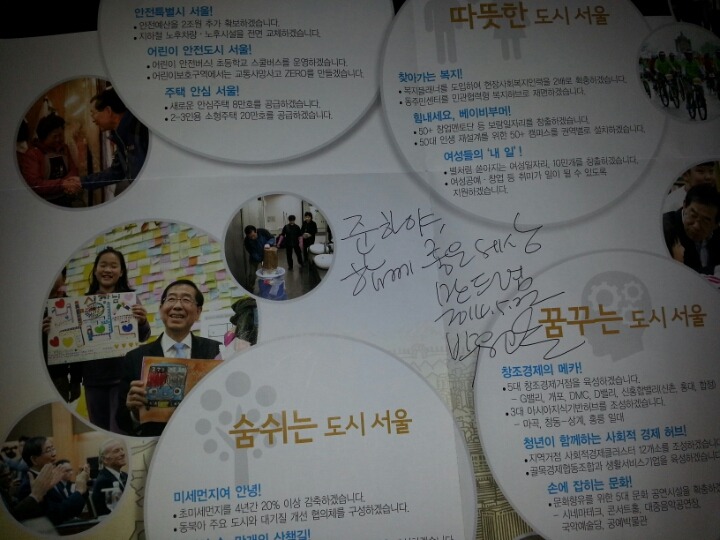 안전특별시 서울!
• 안전예산을 2조원 추가 확보하겠습니다.
• 지하철 노후차량·노후시설을 전면 교체하겠습니다.
어린이 안전도시 서울!
• 어린이 안전버스! 초등학교 스쿨버스를 운영하겠습니다.
• 어린이보호구역에서는 교통사망사고 ZERO를 만들겠습니다.
주택 안심 서울!
• 새로운 안심주택 8만호를 공급하겠습니다.
• 2~3인용 소형주택 20만호를 공급하겠습니다.
따뜻한 도시 서울
찾아가는 복지!
• 복지플래너를 도입하여 현장사회복지인력을 2배로 확충하겠습니다.
• 동주민센터를 민관협력형 복지허브로 재편하겠습니다.
힘내세요, 베이비부머!
• 50+ 창업멘토단 등 보람일자리를 창출하겠습니다.
• 50대 인생 재설계를 위한 50+ 캠퍼스를 권역별로 설치하겠습니다.
여성들의 '내 일'!
• 별처럼 쏟아지는 여성일자리, 10만개를 창출하겠습니다.
• 여성공예·창업 등 취미가 일이 될 수 있도록
지원하겠습니다.
준희야,
함께 좋은 세상
만드렴
2014.5.22
박원순
숨쉬는 도시 서울
미세먼지여 안녕!
• 초미세먼지를 4년간 20% 이상 감축하겠습니다.
• 동북아 주요 도시와 대기질 개선 협의체를 구성하겠습니다.
산책길!
꿈꾸는 도시 서울
창조경제의 메카!
• 5대 창조경제거점을 육성하겠습니다.
- G밸리, 개포, DMC, D밸리, 신홍합밸리(신촌, 홍대, 합정)
• 3대 아시아지식기반허브를 조성하겠습니다.
- 마곡, 창동~상계, 홍릉 일대
청년이 함께하는 사회적 경제 허브!
• 지역거점 사회적경제클러스터 12개소를 조성하겠습니다
• 골목경제협동조합과 생활서비스기업을 육성하겠습니다
손에 잡히는 문화!
• 문화향유를 위한 5대 문화 공연시설을 확충하겠습니다
- 시네마테크, 콘서트홀, 대중음악공연장,
국악예술당, 공예박물관